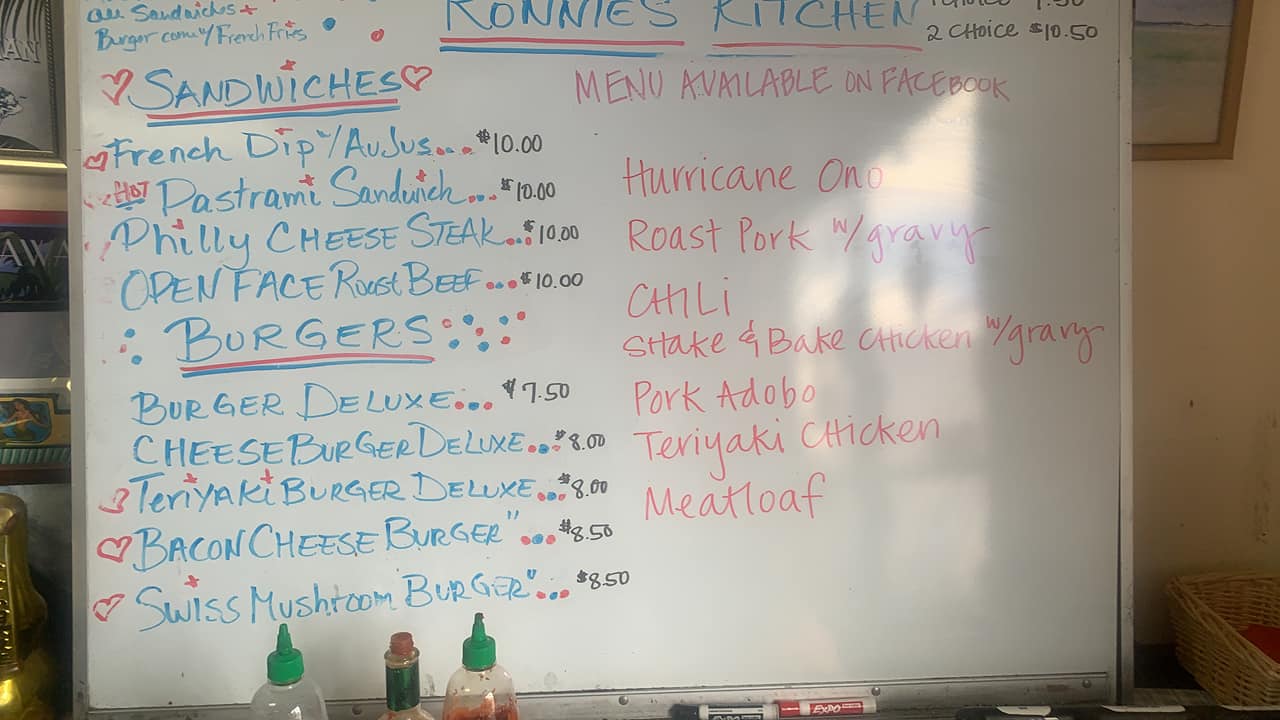 All Sandwiches +
Burger come w/ French Fries
RONNIE'S KITCHEN
2 CHOICE $10.50
SANDWICHES
MENU AVAILABLE ON FACEBOOK
French Dip w/ AuJus.... $10.00
HOT Pastrami Sandwich.... $10.00
Philly CHEESE STEAK... $10.00
OPEN FACE Roast BEEF... $10.00
BURGERS
BURGER DELUXE... $7.50
CHEESE BURGER DELUXE... $8.00
TeriYAKi BURGER DELUXE... $8.00
BACON CHEESE BURGER"... $8.50
SWISS Mushroom BURGER"... $8.50
Hurricane Ono
Roast Pork w/gravy
CHILi
SHAKE & BAKE CHicken w/gravy
Pork Adobo
Teriyaki CHicken
Meatloaf
EXPO